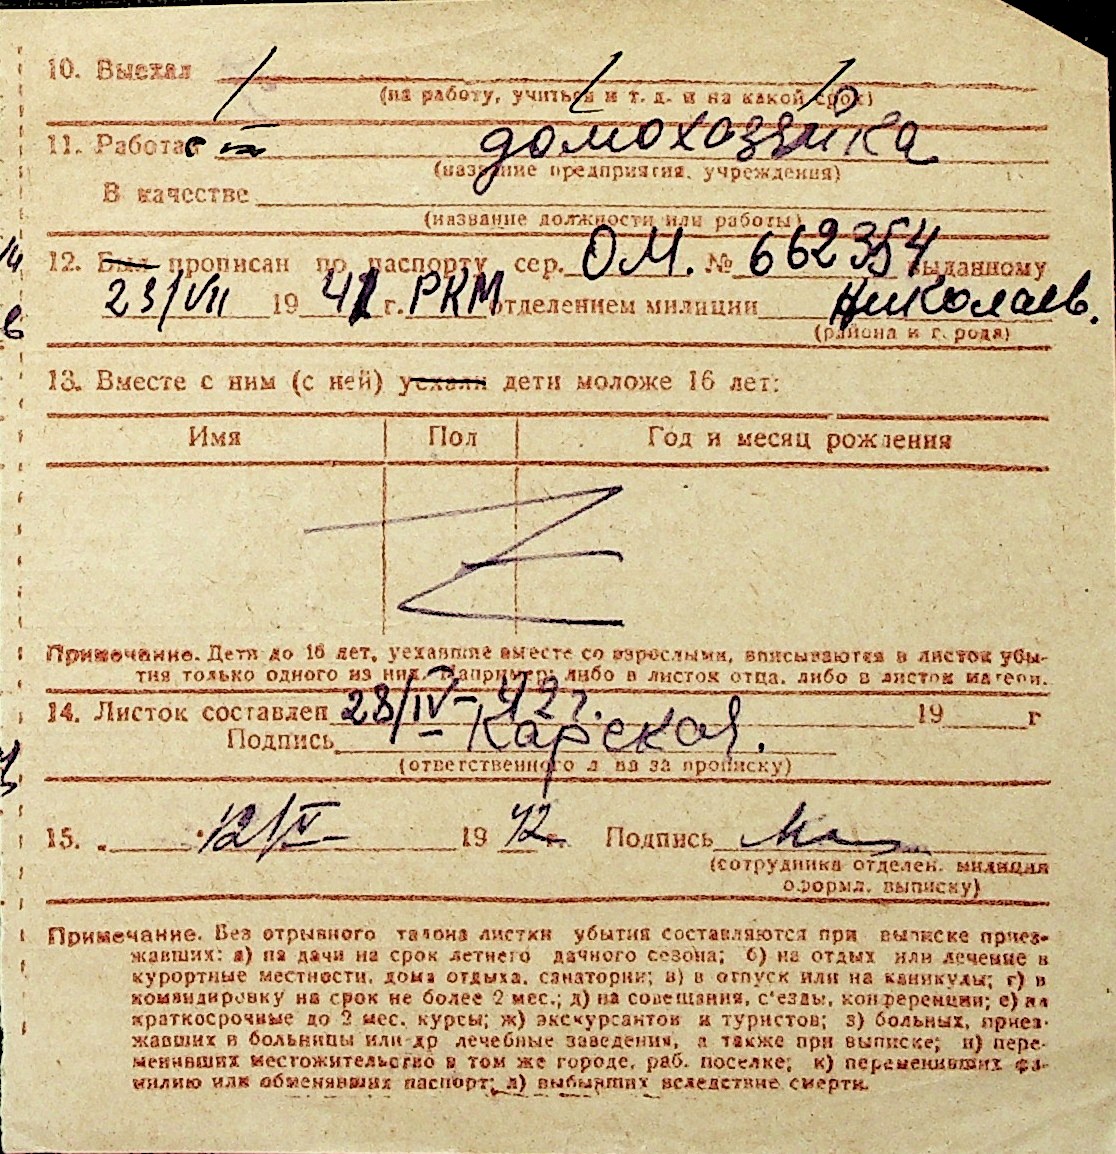 10. Выехал
(на работу, учиться и т. д. и на какой срок)
11. Работает домохозяйка
(название предприятия, учреждения)
В качестве
(название должности или работы)
12. Был прописан по паспорту сер. ОМ. № 662354 выданному
23/VII 1941 г. РКМ отделением милиции Николаев.
(района и города)
13. Вместе с ним (с ней) уехали дети моложе 16 лет:
Имя Пол Год и месяц рождения
Примечание. Дети до 16 лет, уехавшие вместе со взрослыми, вписываются в листок убы-
тия только одного из них. Например: либо в листок отца, либо в листок матери.
14. Листок составлен 28/IV-42г. 19 г
Подпись Карская.
(ответственного лица за прописку)
15. 12/V 1942 г. Подпись
(сотрудника отделен. милиции
оформл. выписку)
Примечание. Без отрывного талона листки убытия составляются при выписке приез-
жавших: а) на дачи на срок летнего дачного сезона; б) на отдых или лечение в
курортные местности, дома отдыха, санатории; в) в отпуск или на каникулы; г) в
командировку на срок не более 2 мес.; д) на совещания, с'езды, конференции; е) на
краткосрочные до 2 мес. курсы; ж) экскурсантов и туристов; з) больных, приез-
жавших в больницы или др лечебные заведения, а также при выписке; и) пере-
менивших местожительство в том же городе, раб. поселке; к) переменивших фа-
милию или обменявших паспорт; л) выбывших вследствие смерти.